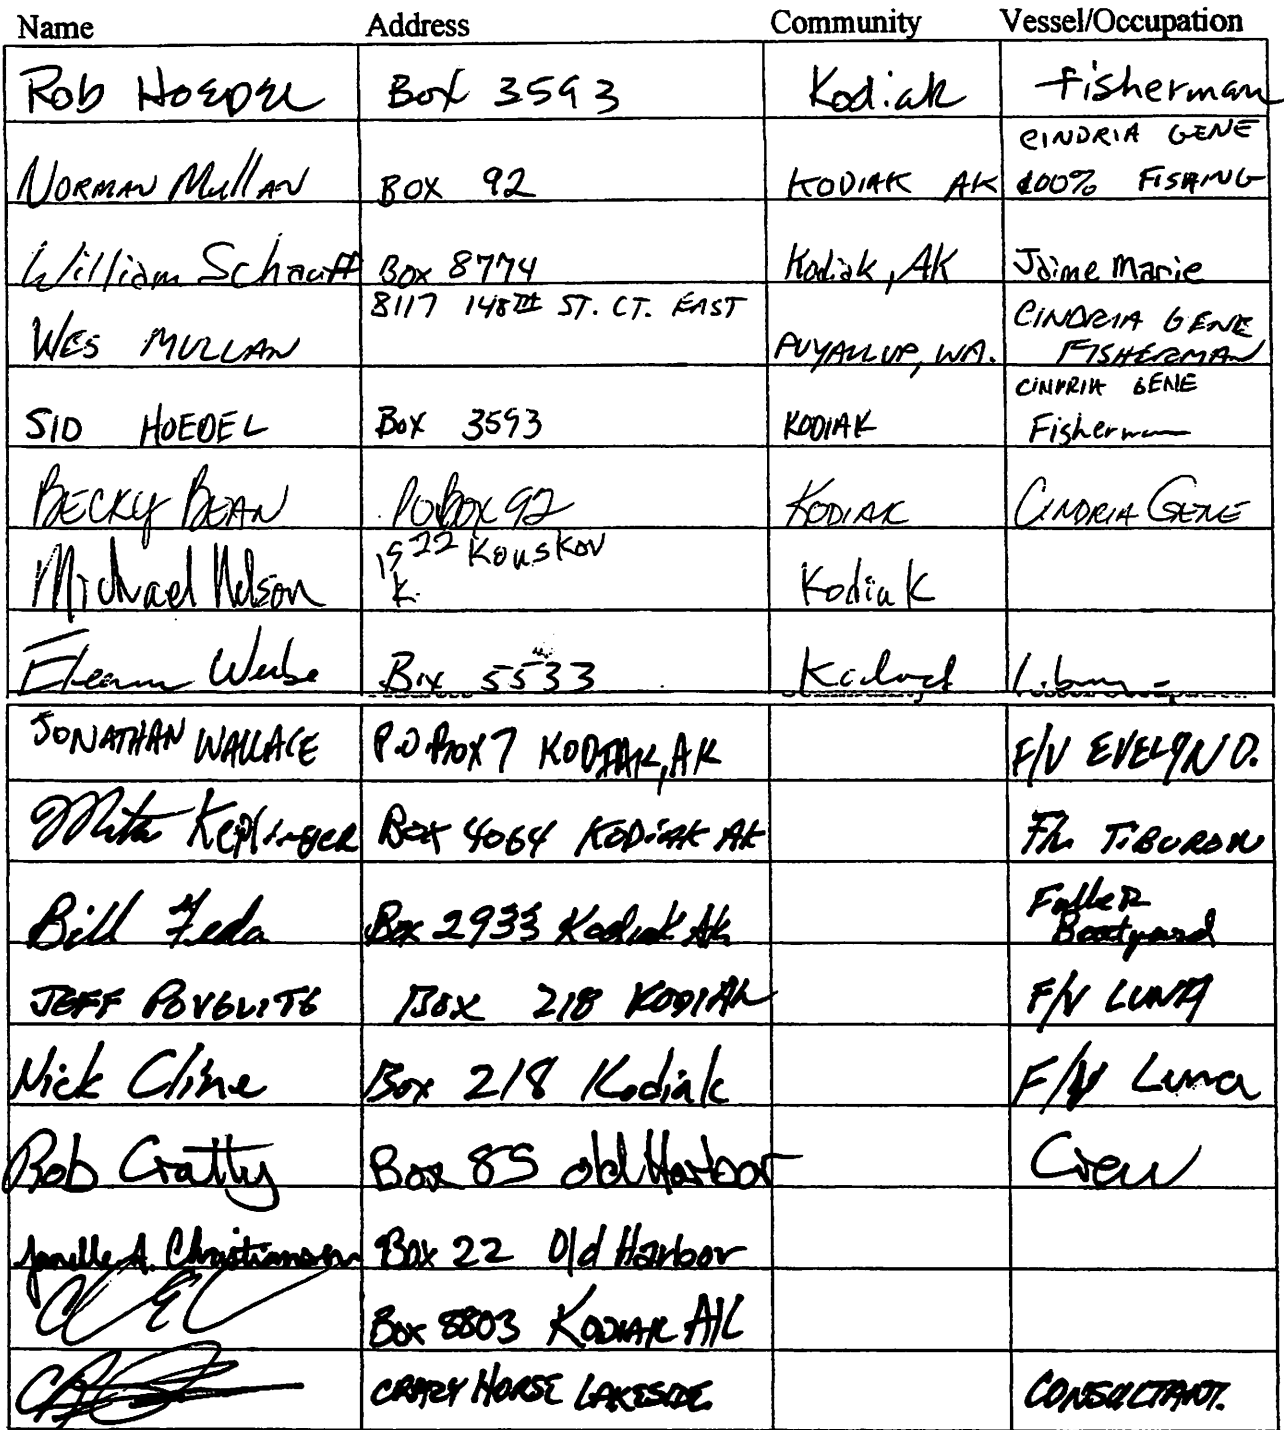 Name Address Community Vessel/Occupation
Rob HOEDEL Box 3593 Kodiak fisherman
NORMAN MULLAN BOX 92 KODIAK AK CINDRIA GENE 100% FISHING
William Schauff Box 8774 Kodiak, AK Jaime Marie
WES MULLAN 8117 148TH ST. CT. EAST PUYALLUP, WA. CINDRIA GENE FISHERMAN
SID HOEDEL Box 3593 KODIAK CINDRIA GENE Fisherman
BECKY BEAN PO Box 92 KODIAK CINDRIA GENE
Michael Nelson 1522 Kouskov K. Kodiak
Box 5533
JONATHAN WALLACE P.O Box 7 KODIAK, AK F/V EVELYN O.
Keplinger Box 4064 KODIAK AK F/V TIBURON
Bill Feda Box 2933 Kodiak Ak Fuller Boatyard
JEFF POVELITE Box 218 KODIAK F/V LUNA
Nick Cline Box 218 Kodiak F/V Luna
Rob Cratty Box 85 old Harbor Crew
Janelle A. Christiansen Box 22 Old Harbor
Box 8803 KODIAK AK
CRAZY HORSE LAKESIDE. CONSULTANT.